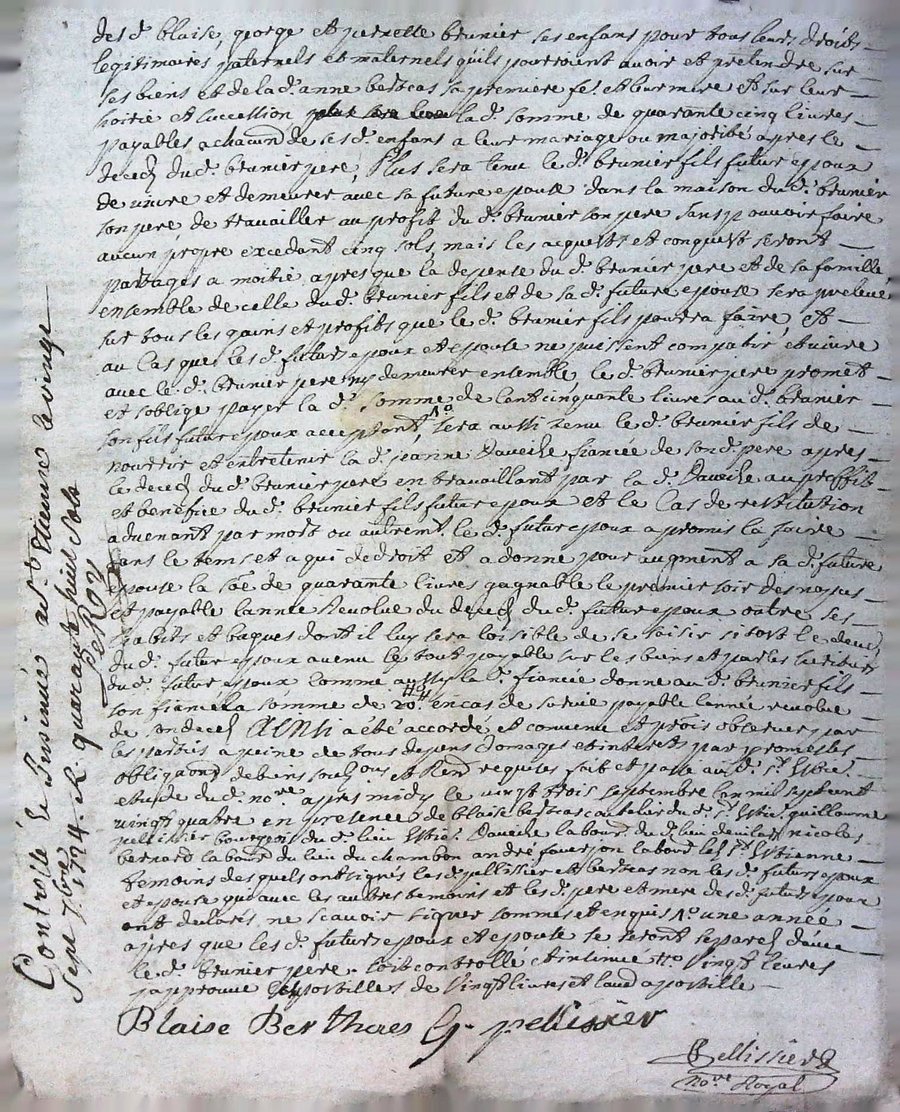 desd. blaise, george et perrette brunier ses enfans pour tous leurs droits
legitimaires paternels et maternels quils pourroient avoir et pretendre sur
ses biens et de la d. anne berthas sa premiere fe. et leur mere et sur leur
hoirie et succession la d. somme de quarante cinq livres
payables a chacun de ses d. enfans a leur mariage ou majorité apres le
deces du d. brunier pere, Plus sera tenu le d. brunier fils futur epoux
de vivre et demeurer avec sa future epouse dans la maison du d. brunier
son pere, de travailler au profit du d. brunier son pere sans pouvoir faire
aucun propre excedant cinq sols, mais les acquests et conquest seront
partagés a moitié apres que la depense du d. brunier pere et de sa famille
ensemble de celle du d. brunier fils et de sa d. future epouse sera prelevé
sur tous les gains et profits que le d. brunier fils pourra faire, et
au cas que les d. futurs epoux et epouse ne puissent compatir et vivre
avec le d. brunier pere ny demeurer ensemble, le d. brunier pere promet
et soblige payer la d. somme de cent cinquante livres au d. brunier
son fils futur epoux acceptant, sera aussi tenu le d. brunier fils de
nourrir et entretenir la d. jeanne fiancée de son d. pere apres
le deces du d. brunier pere en travaillant par la d. au proffit
et benefice du d. brunier fils futur epoux et le cas de restitution
advenant par mort ou autremt. le d. futur epoux a promis la faire
dans le tems et a qui de droit et a donne pour augment a sa d. future
epouse la soe de quarante livres gagnable le premier soir des nopces
et payable lannée revolue du deces du d. futur epoux outre ses
habits et bagues dont il luy sera loisible de se saisir sitost le deces
du d. futur epoux avenu le tout payable sur les biens et par les heritiers
du d. futur epoux comme aussy la d. fiancée donne au d. brunier fils
son fiancé la somme de 20 en cas de survie payable lannée revolue
de son deces AINSI a été accordé et convenu et promis observer par
les parties a peine de tous depens domages et interets par promesses
obligaons de biens et Rend requises fait et passé au d. st. Estie.
etude du d. nore apres midy le vingt trois septembre lan mil sept cent
vingt quatre en presence de blaise berthas du d. st. Estie. guillaume
pellissier bourgeois du d. lieu Estie. labour. du d. lieu nicolas
bernard labour. du lieu du chambon andré faurjon labour. les st. Estienne
temoins desquels ont signés les d. pellissier et berthas non les d. futurs epoux
et epouse qui avec les autres temoins et les d. pere et mere des d. futurs epoux
ont declarés ne scavoir signer sommés et enquis une année
apres que les d. futurs epoux et epouse se seront separés davec
le d. brunier pere. soit controllé et insinué vingt livres
japprouve de vingt livres et laud apostille
Blaise Berthaes G. pellissier
Pellissier
nore Royal
Controllé & Insinué a st. Etienne le vingt
sept 7bre 1724. R. quarante huit sols